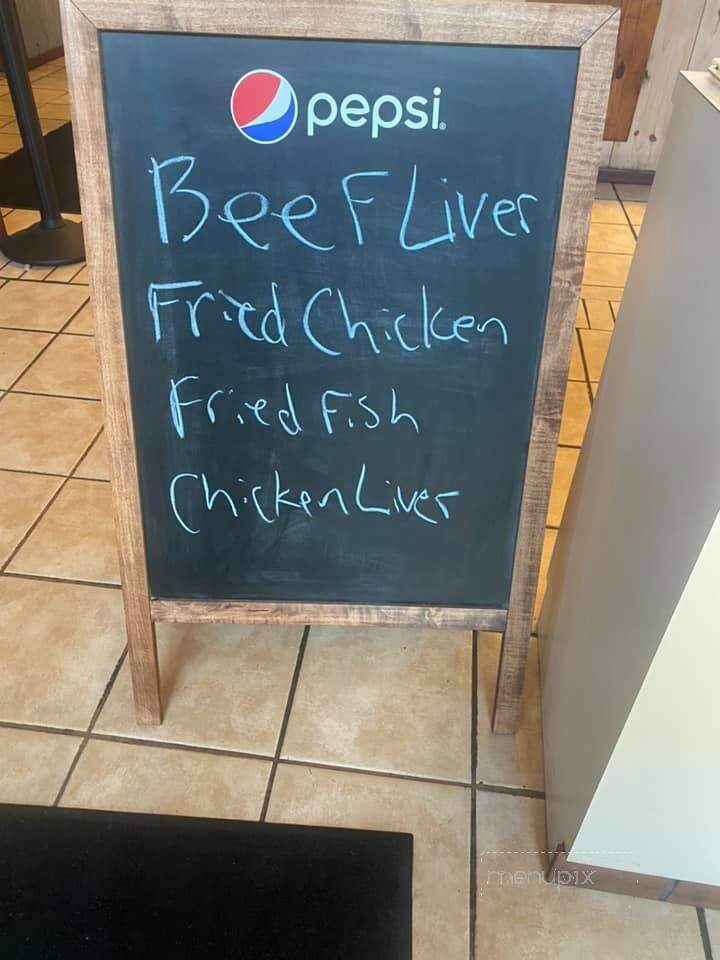 pepsi
Beef Liver
Fried Chicken
Fried Fish
Chicken Liver
menupix